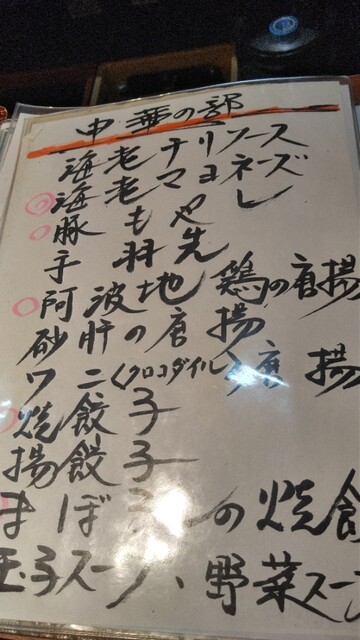 中華の部
海老チリソース
海老マヨネーズ
豚もやし
手羽先
阿波地鶏の唐揚
砂肝の唐揚
ワニ〈クロコダイル〉唐揚
焼餃子
揚餃子
まぼ の焼飯
玉子スープ、野菜スープ